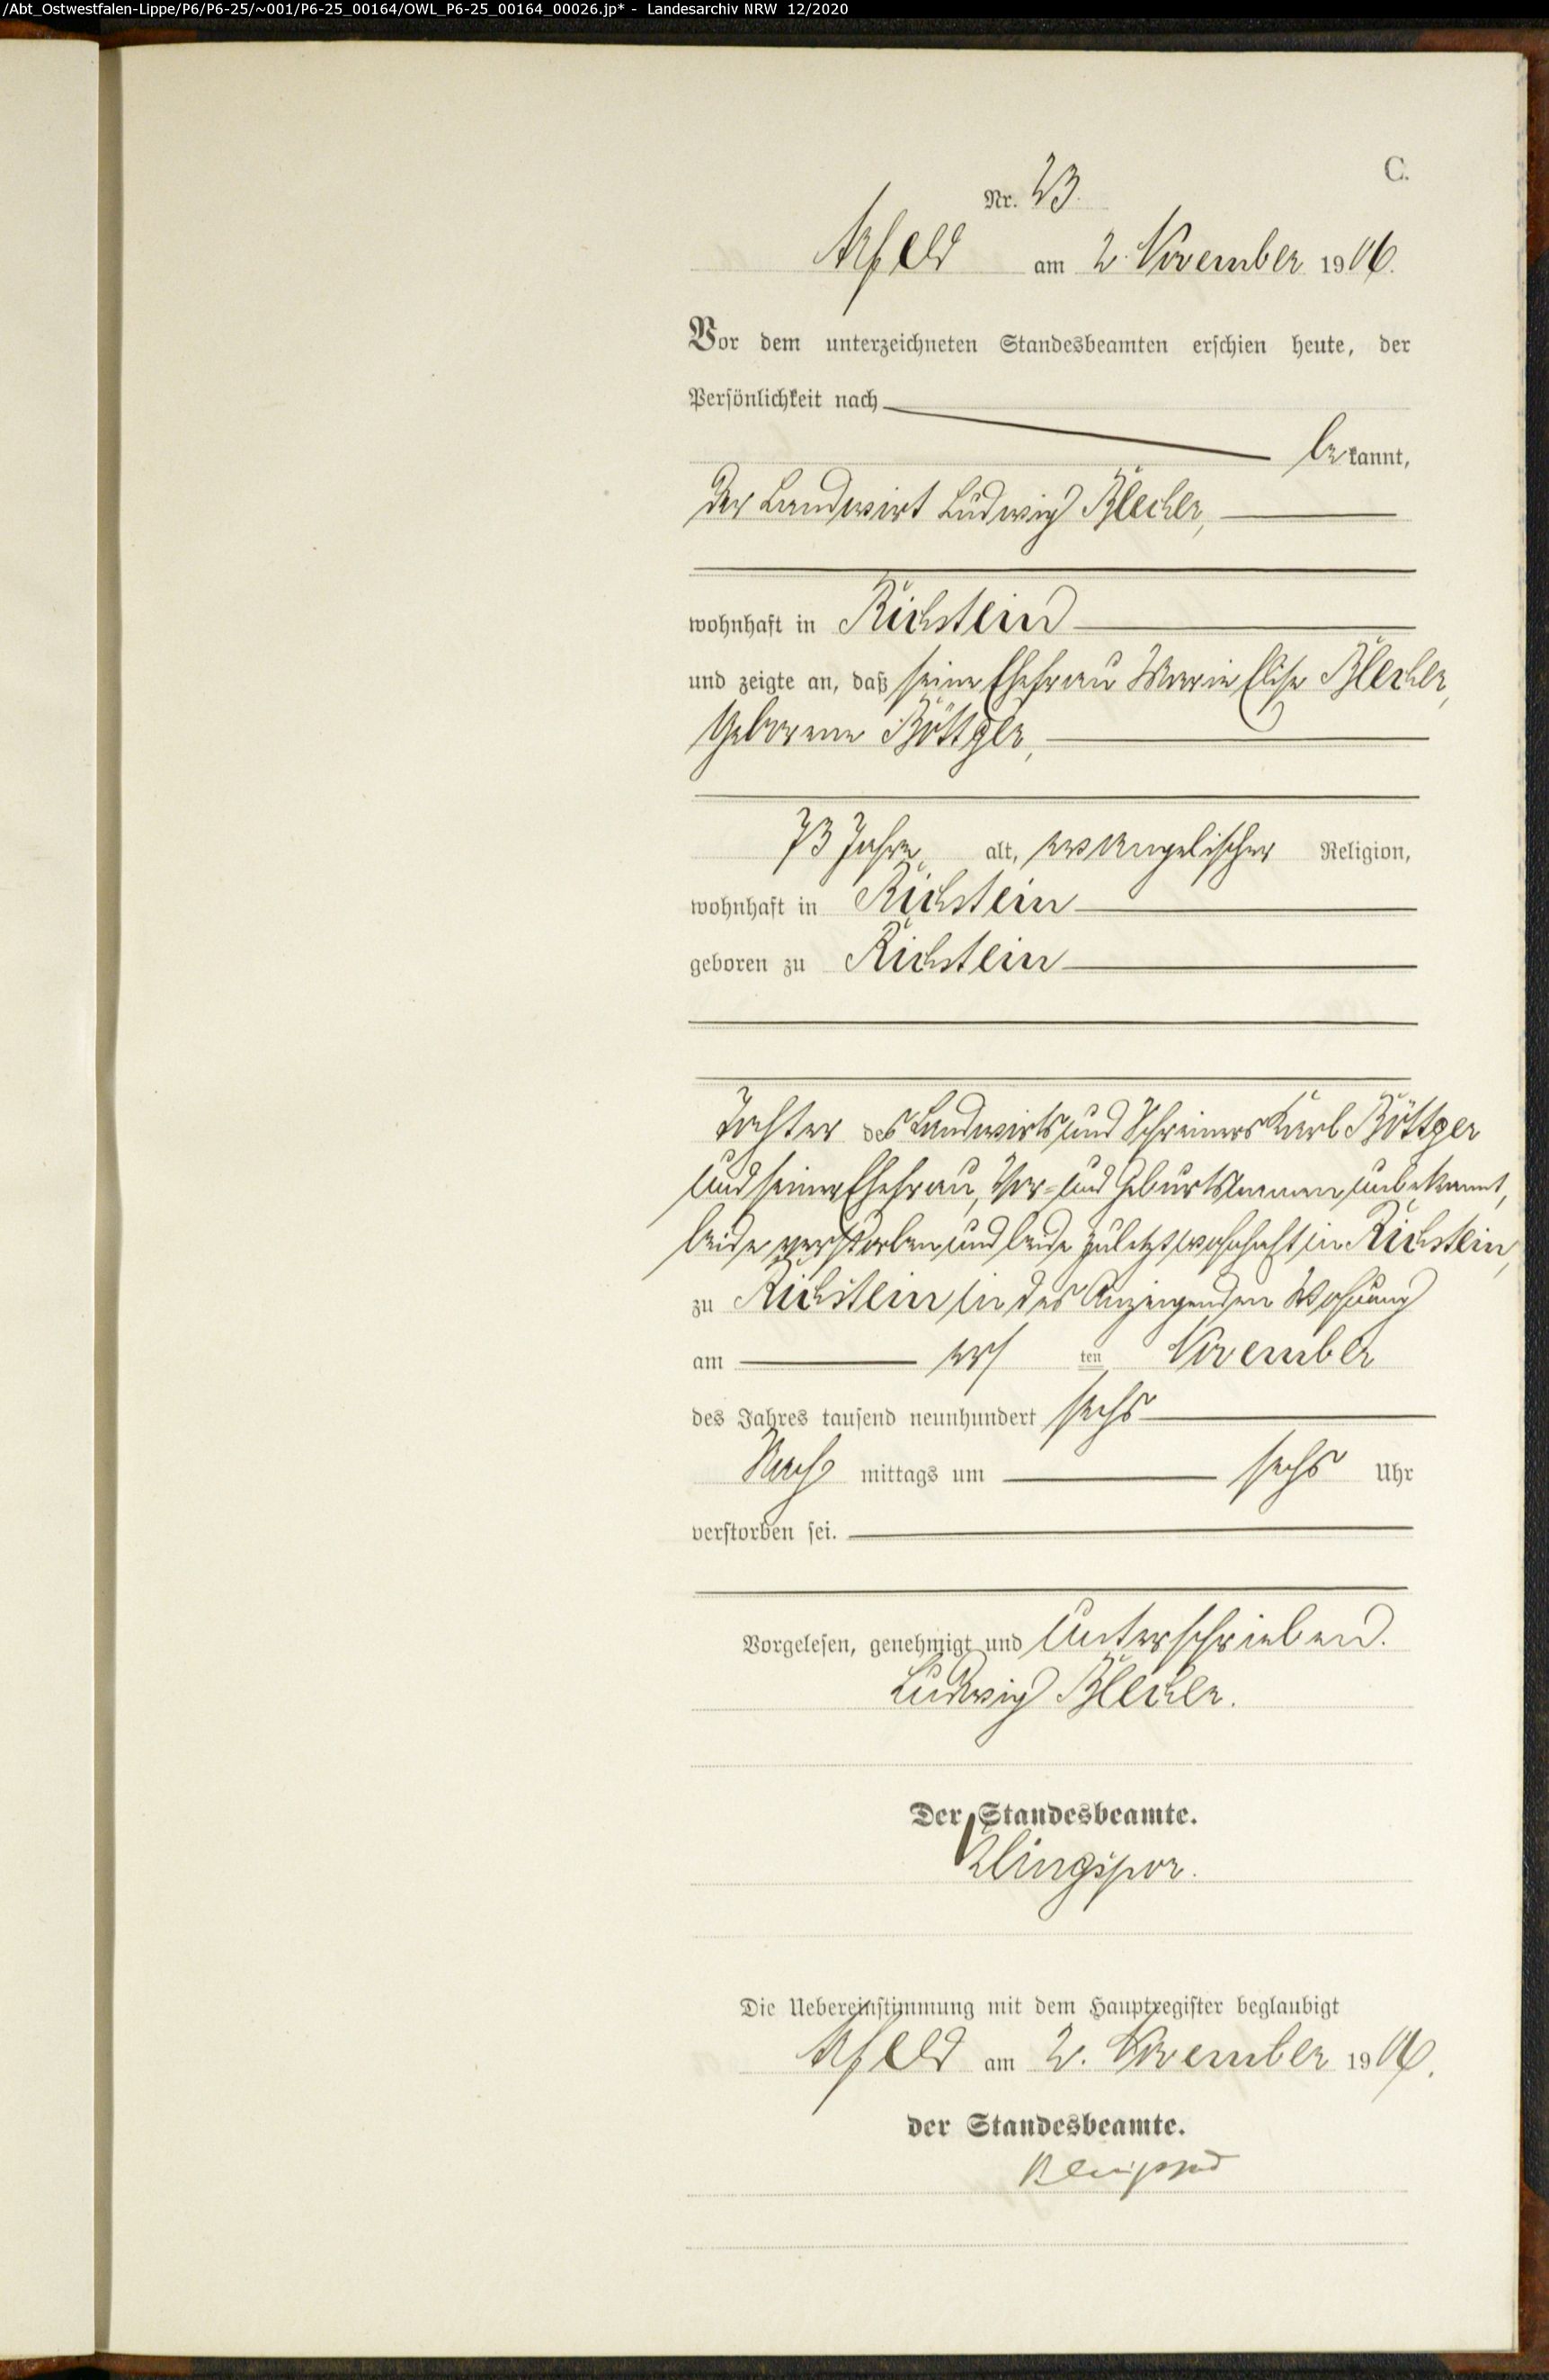 /Abt_Ostwestfalen-Lippe/P6/P6-25/~001/P6-25_00164/OWL_P6-25_00164_00026.jp* - Landesarchiv NRW 12/2020
C.
Nr. 23.
Arfeld am 2. November 1906.
Vor dem unterzeichneten Standesbeamten erschien heute, der
Persönlichkeit nach
bekannt,
der Landwirt Ludwig Blecher,
wohnhaft in Richstein
und zeigte an, daß seine Ehefrau Marie Elise Blecher,
geborene Böttger,
73 Jahre alt, evangelischer Religion,
wohnhaft in Richstein
geboren zu Richstein
Tochter des Landwirts und Schreiners Karl Böttger
und seiner Ehefrau, Vor- und Geburtsnamen unbekannt,
beide verstorben und beide zuletzt wohnhaft in Richstein,
zu Richstein in des Anzeigenden Wohnung
am ersten November
des Jahres tausend neunhundert sechs
Nachmittags um sechs Uhr
verstorben sei.
Vorgelesen, genehmigt und unterschrieben.
Ludwig Blecher.
Der Standesbeamte.
Klingspor.
Die Uebereinstimmung mit dem Hauptregister beglaubigt
Arfeld am 2. November 1906.
der Standesbeamte.
Klingspor